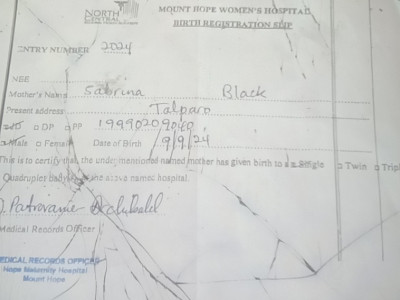 NORTH
CENTRAL
MOUNT HOPE WOMEN'S HOSPITAL
BIRTH REGISTRATION SLIP
ENTRY NUMBER 2024
Mother's Name Sabrina Black
Present address Talparo
DP PP
Male Female Date of Birth 9/9/24
This is to certify that the undermentioned named mother has given birth to a Single Twin Tripl
Quadruplet the above named hospital.
Medical Records Officer
MEDICAL RECORDS OFFICER
Hope Maternity Hospital
Mount Hope